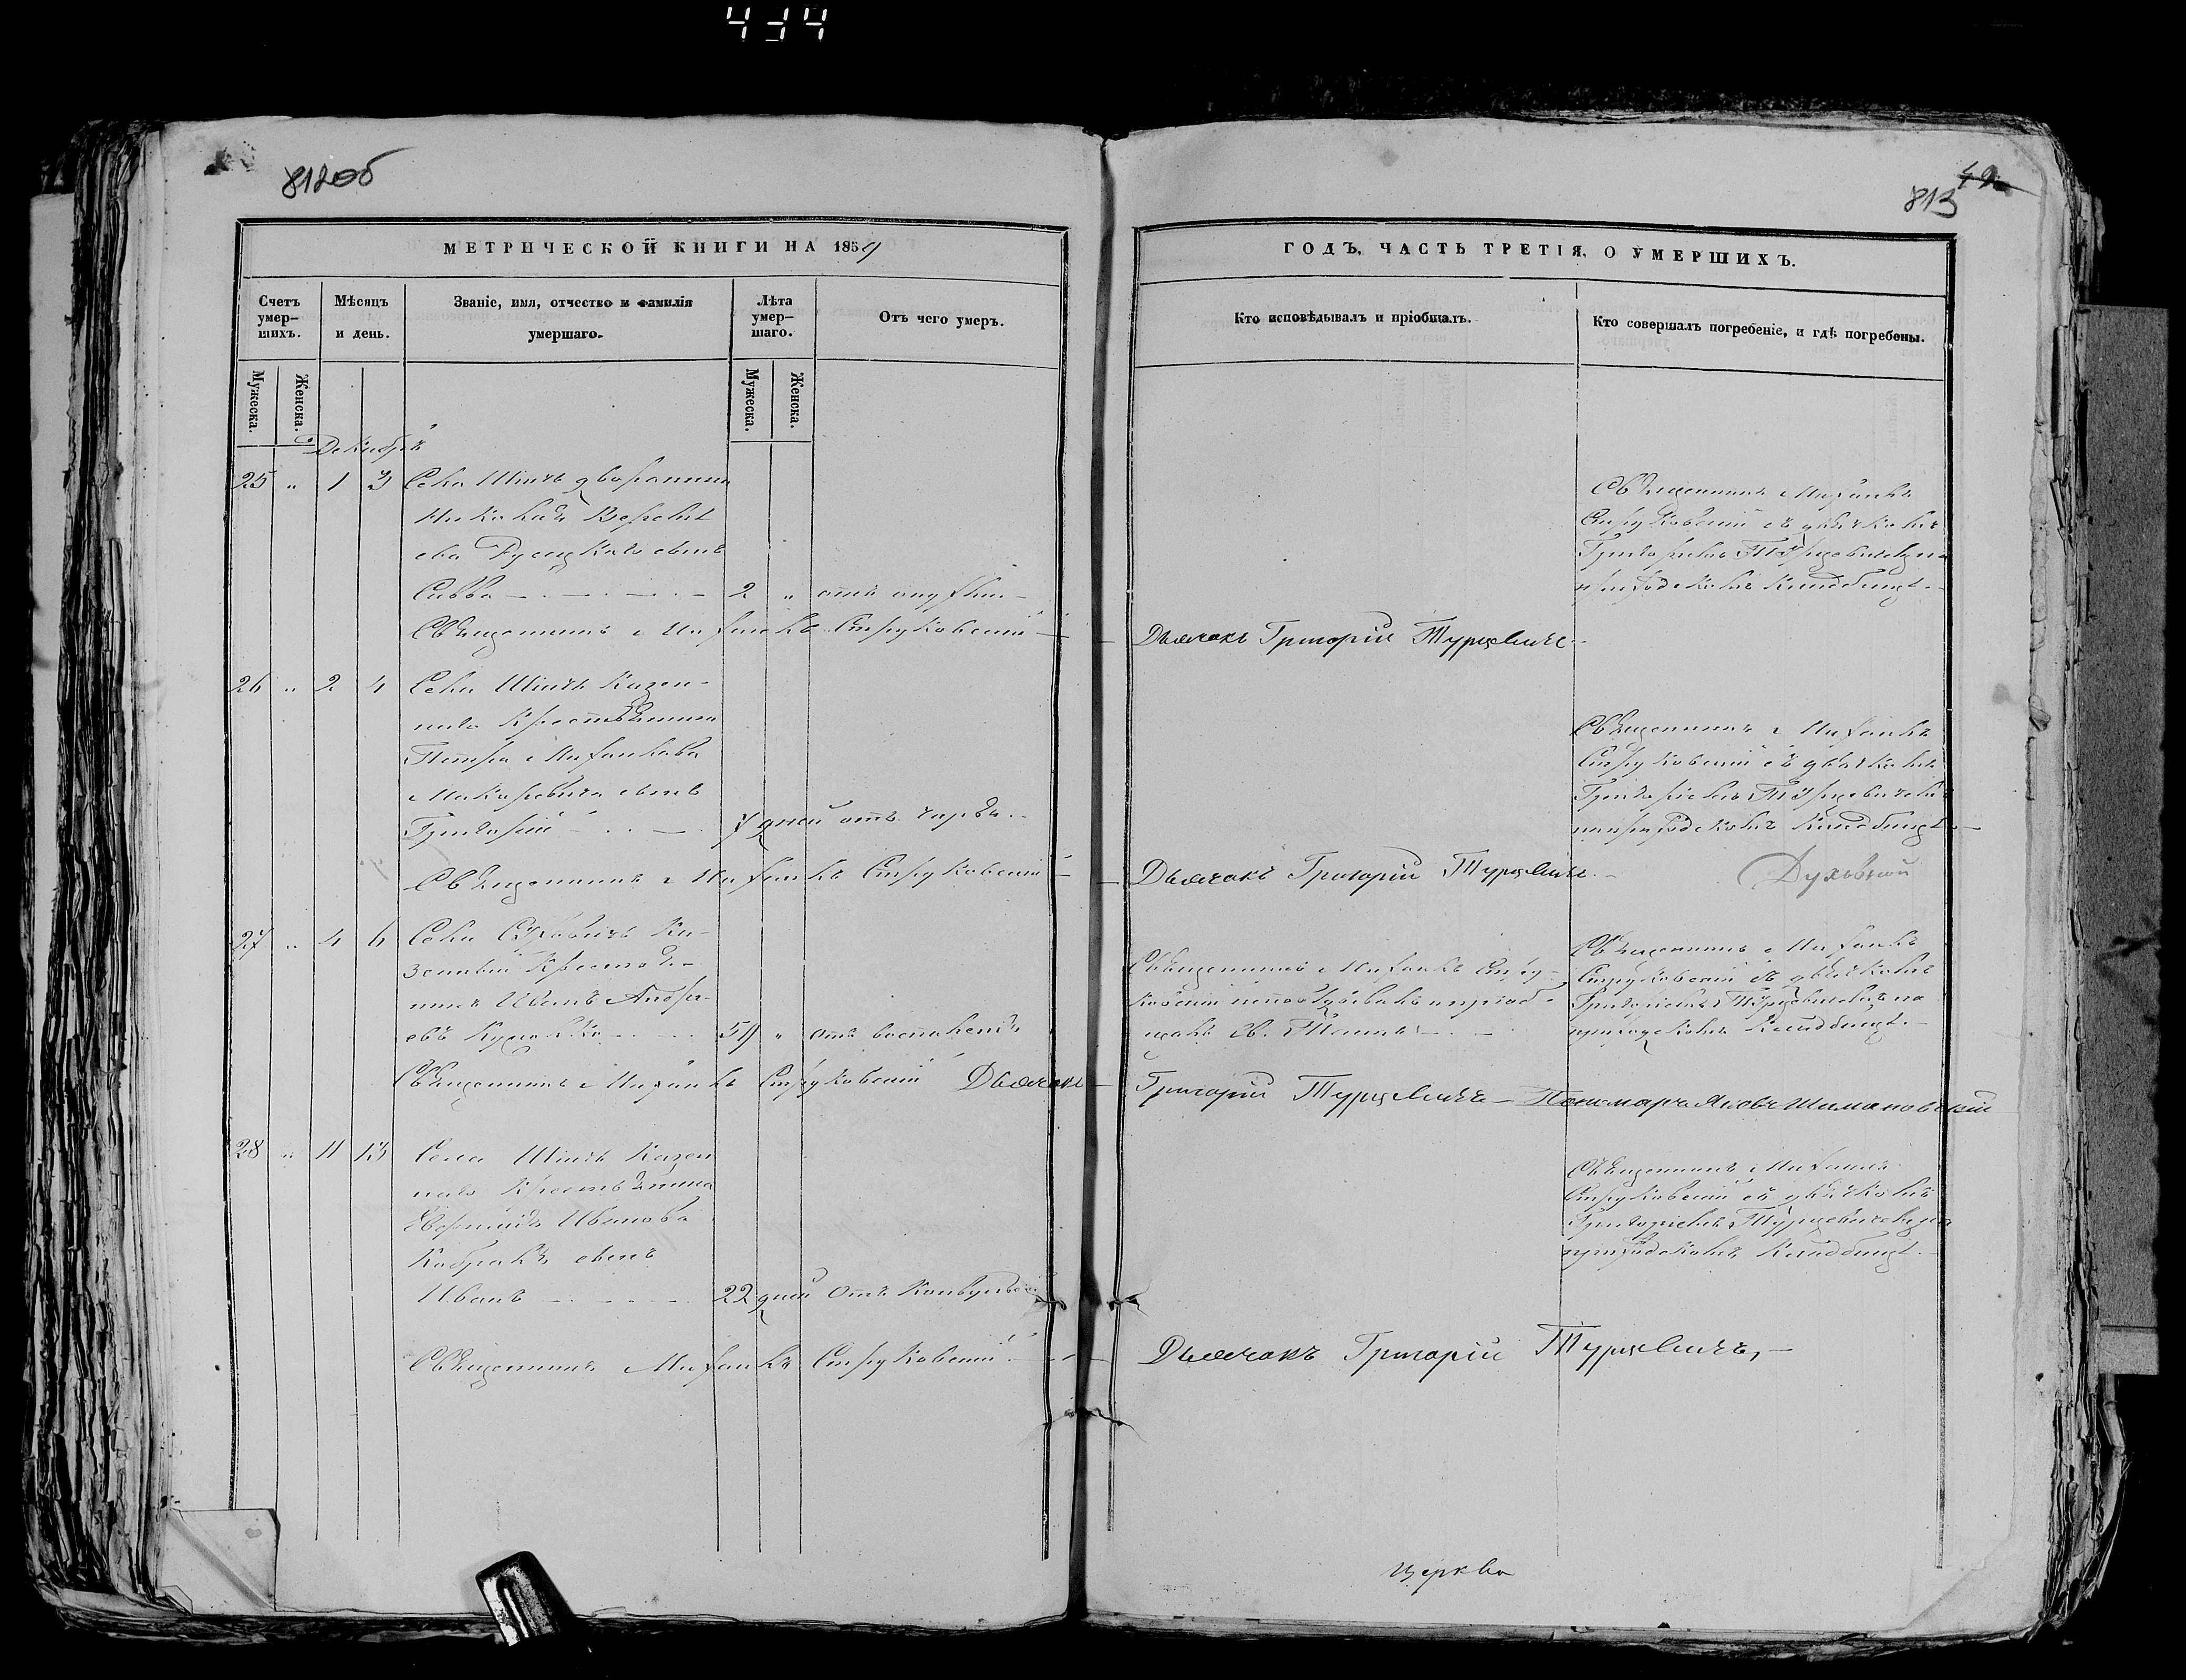 434
812об
813
49
МЕТРИЧЕСКОЙ КНИГИ НА 1859
Счетъ умер-
шихъ.
Мѣсяцъ
и день.
Званіе, имя, отчество и фамилія
умершаго.
Лѣта
умер-
шаго.
Отъ чего умеръ.
Мужеска.
Женска.
Мужеска.
Женска.
Декабрь
25 " 1 3 Села дворянина
Николая
Руецкаго сынъ
Савва 2 " отъ
Священникъ Михаилъ Струковскій
26 " 2 4 Села Казен-
наго Крестьянина
Петра Михаилова
Макаревича сынъ
Григорій 7 дней отъ
Священникъ Михаилъ Струковскій
27 " 4 6 Села Ка-
зенный Крестья-
нинъ Иванъ Андре-
евъ 59 " отъ воспаленія
Священникъ Михаилъ Струковскій Дьячокъ
28 " 11 13 Села Казен
наго Крестьянина
Иванова
сынъ
Иванъ 22 дней Отъ Конвульсіи
Священникъ Михаилъ Струковскій
ГОДЪ, ЧАСТЬ ТРЕТІЯ, О УМЕРШИХЪ.
Кто исповѣдывалъ и пріобщалъ.
Кто совершалъ погребеніе, и гдѣ погребены.
Священникъ Михаилъ
Струковскій съ дьячкомъ
Григоріемъ Турцевичемъ на
приходскомъ Кладбищѣ
Дьячокъ Григорій Турцевичъ
Священникъ Михаилъ
Струковскій съ дьячкомъ
Григоріемъ Турцевичемъ
на приходскомъ Кладбищѣ
Дьячокъ Григорій Турцевичъ
Духовной
Священникъ Михаилъ Стру-
ковскій исповѣдывалъ и пріоб-
щалъ Св. Таинъ
Священникъ Михаилъ
Струковскій съ дьячкомъ
Григоріемъ Турцевичемъ на
приходскомъ Кладбищѣ
Григорій Турцевичъ Пономарь Яковъ Шимановскій
Священникъ Михаилъ
Струковскій съ дьячкомъ
Григоріемъ Турцевичемъ на
приходскомъ Кладбищѣ
Дьячокъ Григорій Турцевичъ
церкви